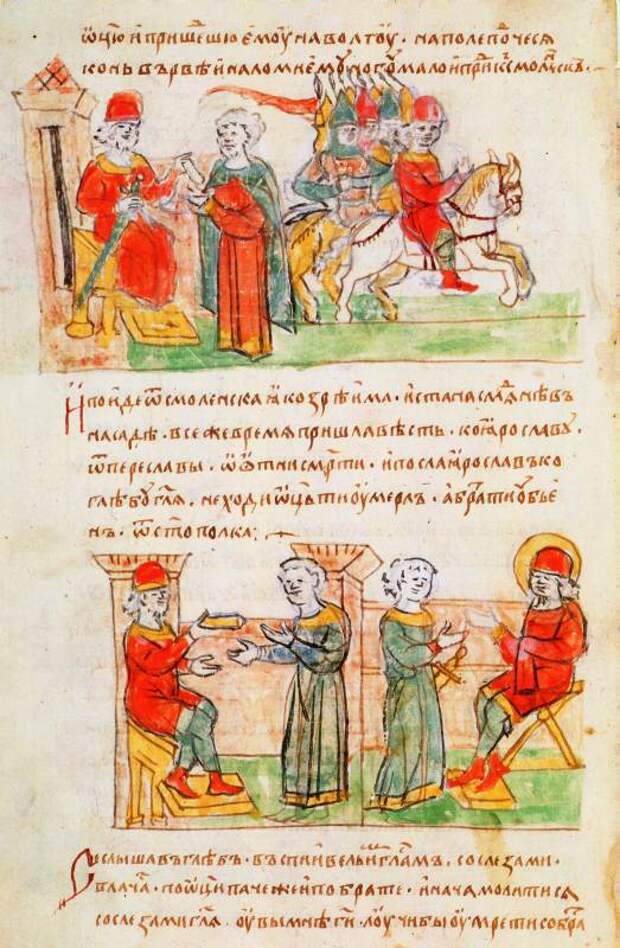 ѿцю и пришешю емоу на волгоу · на поле потчеся
конь въ рвѣ и наломи ему ногу мало и прїи къ смоленску ·
И поиде ѿ смоленска ꙗко зрѣима · и ста на смѧдинѣ въ
насадѣ · в се же время пришла вѣсть · къ ꙗрославу ·
ѿ переславы · ѡ ѡтни смрти · и посла ꙗрославъ ко
глѣбу гл҃я · не ходи ѿць ти оумерлъ · а братъ ти убье
нъ · ѿ стополка :
Се слышавъ глѣбъ · въспи вельми гла̑мъ · со слезами ·
плачася по ѿци паче же и по брате · и нача молитися
со слезами гл҃я · оувы мнѣ ги · лоуче бы оумрети со бра